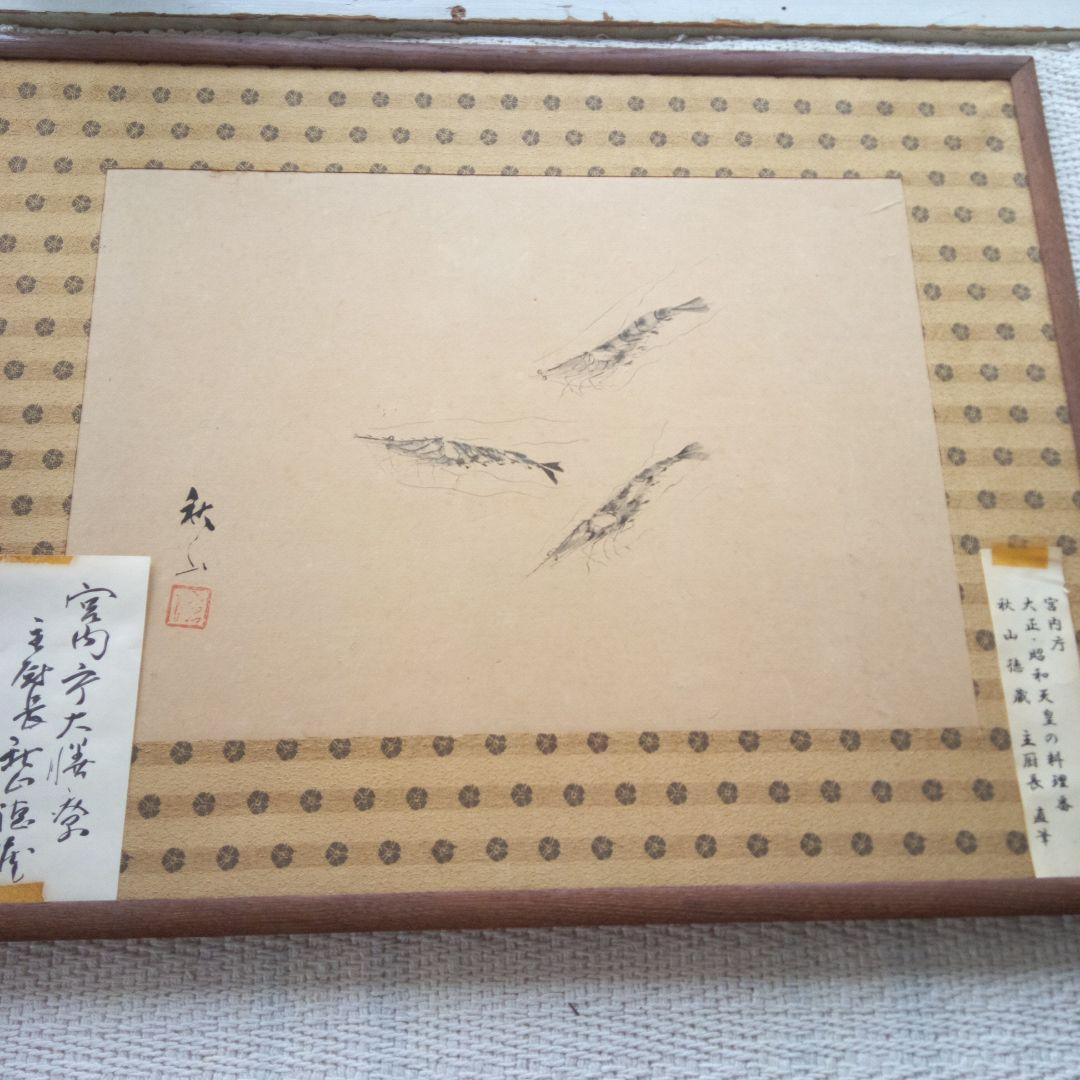 宮内庁
大正・昭和天皇の料理番
秋山徳蔵 主厨長 直筆
秋山
宮内庁大膳寮
主厨長秋山徳蔵